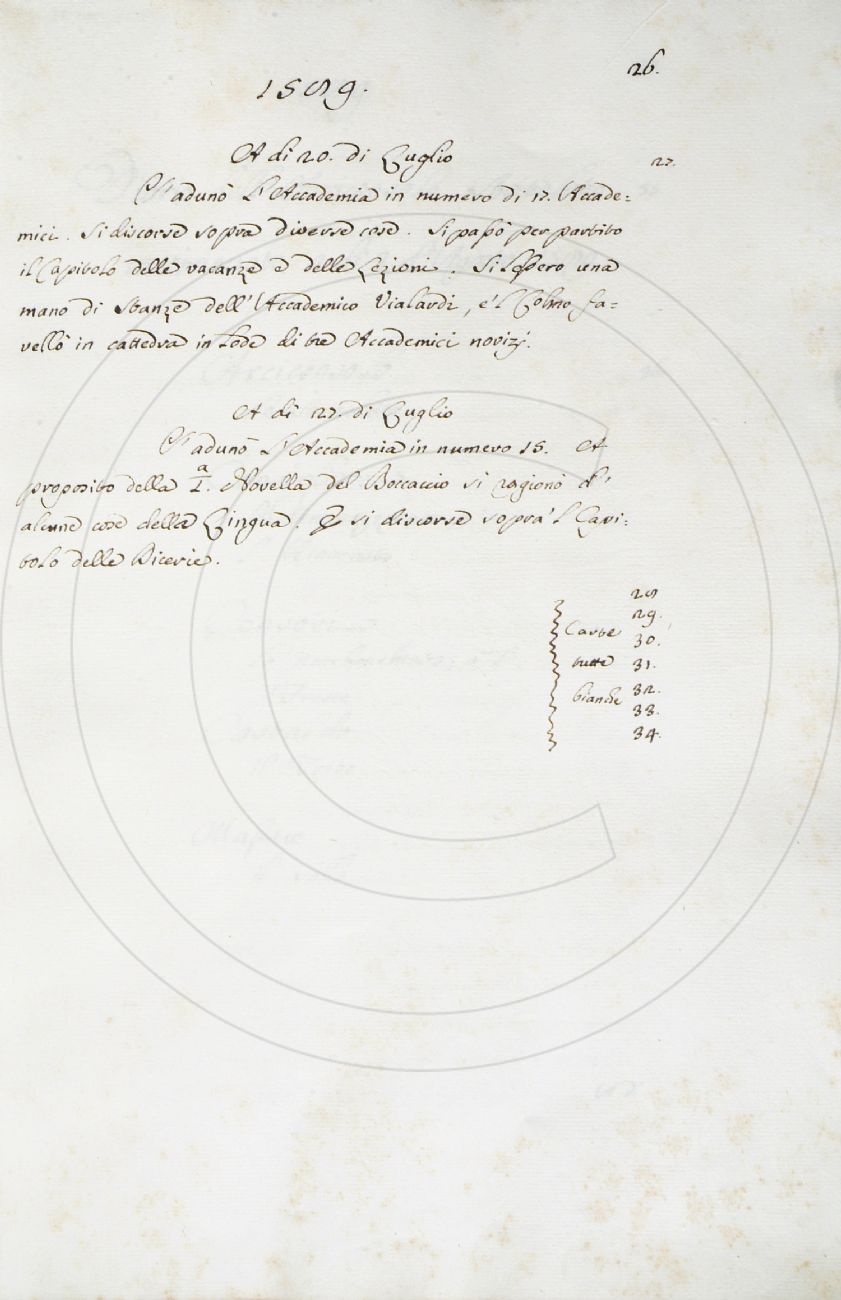 26.
1589.
A di 20. di Luglio
27.
S'adunò l'Accademia in numero di 17. Accade=
mici. Si discorse sopra diverse cose. Si passò per partito
il Capitolo delle vacanze e delle Lezioni. Si lessero una
mano di Stanze dell'Accademico Vialardi, e'l Colmo fa=
vellò in cattedra in lode di tre Accademici novizj.
A di 27. di Luglio
S'adunò l'Accademia in numero 15. A
proposito della 1.ª Novella del Boccaccio si ragionò d'
alcune cose della Lingua. E si discorse sopra'l Capi=
tolo delle Dicerie.
28
29.
Carte
30.
tutte 31.
bianche 32.
33.
34.